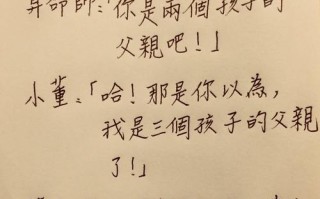 算命師：「你是兩個孩子的
父親吧！」
小董：「哈！那是你以為，
我是三個孩子的父親
了！」